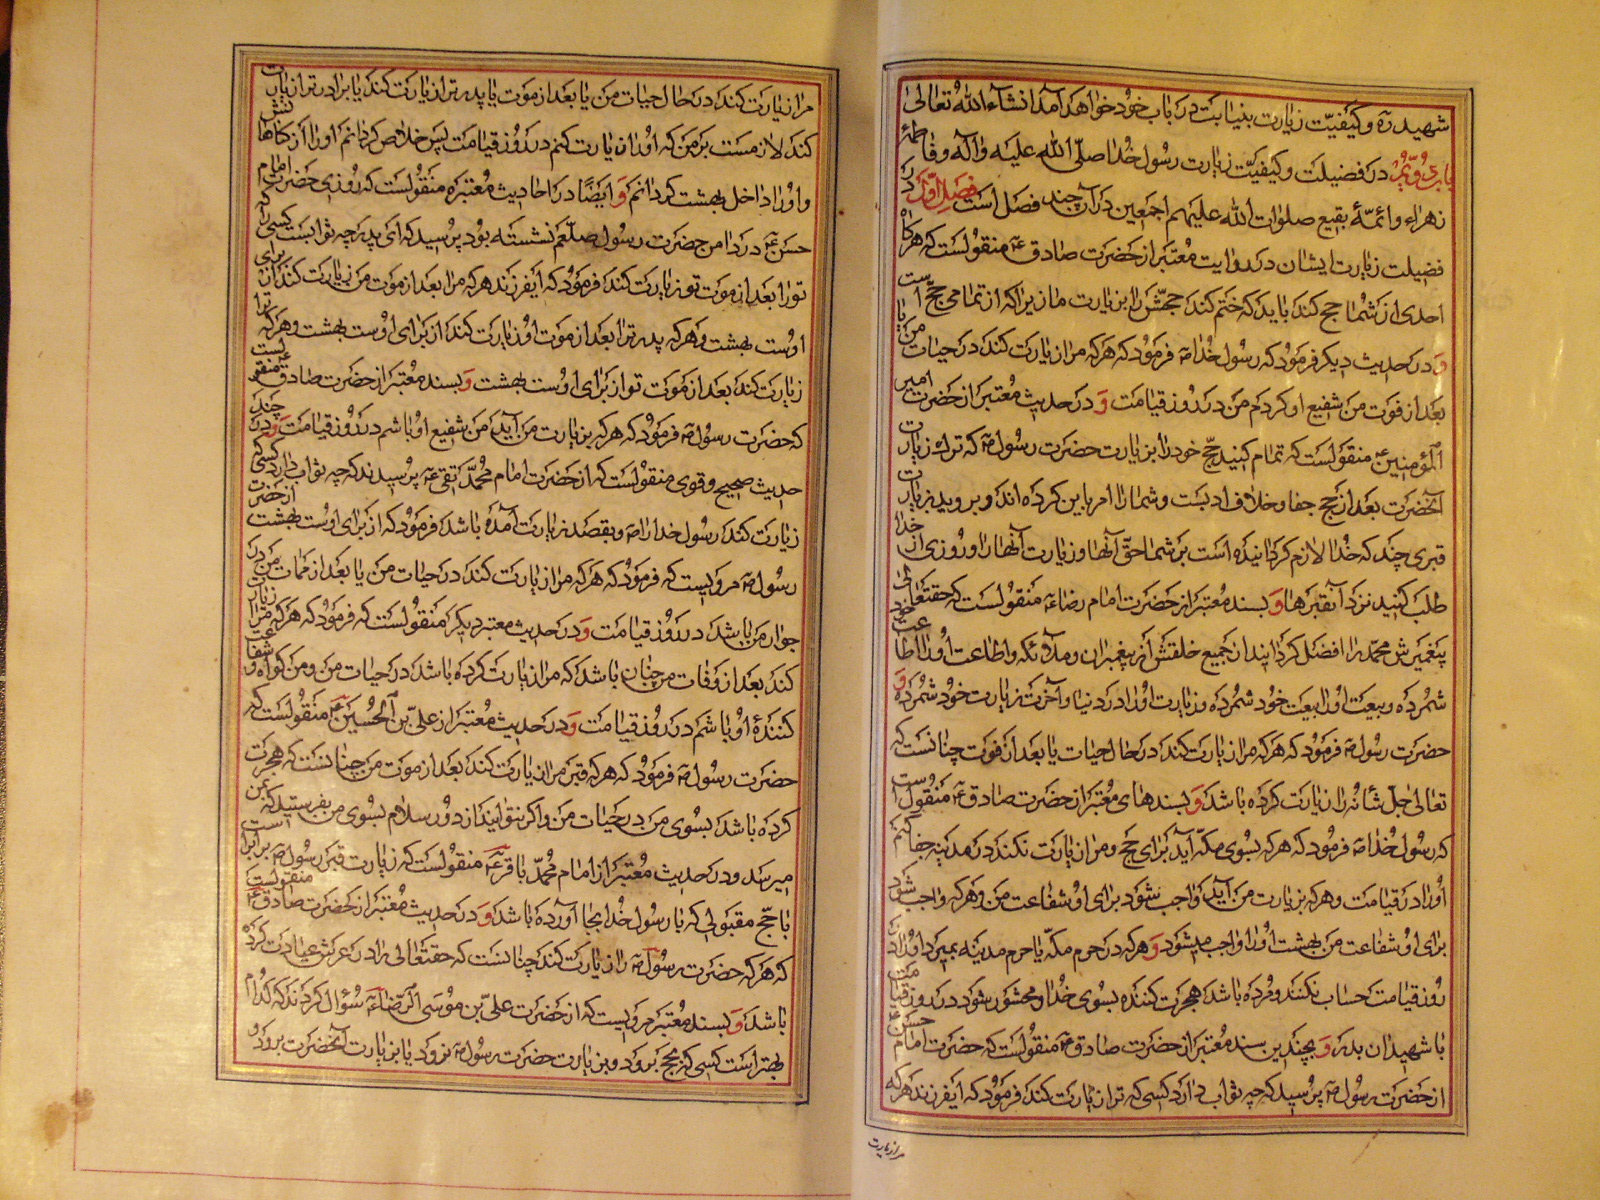 شهید ره و کیفیّت زیارت بنیابت در باب خود خواهد آمد انشاء الله تعالی
باب دویّم در فضیلت و کیفیّت زیارت رسول خدا صلّی الله علیه و آله و فاطمهٔ
زهراء و ائمّهٔ بقیع صلوات الله علیهم اجمعین در آن چند فصل است فصل اوّل در
فضیلت زیارت ایشان در روایت معتبر از حضرت صادق ع منقولست که هرگاه
احدی از شما حج کند باید که ختم کند حجّش را بزیارت ما زیرا که از تمامی حجّ است
و در حدیث دیگر فرمود که رسول خدا ص فرمود که هرکه مرا زیارت کند در حیات من یا
بعد از فوت من شفیع او گردم من در روز قیامت و در حدیث معتبر از حضرت امیر
المؤمنین ع منقولست که تمام کنید حجّ خود را بزیارت حضرت رسول ص که ترک زیارت
آنحضرت بعد از حج جفا و خلاف ادبست و شما را امر باین کرده‌اند و بروید بزیارت
قبری چند که خدا لازم گردانیده است بر شما حقّ آنها و زیارت آنها را و روزی از خدا
طلب کنید نزد آنقبرها و بسند معتبر از حضرت امام رضا ع منقولست که حقتعالی
پیغمبرش محمّد را افضل گردانید از جمیع خلقش از پیغمبران و ملائکه و اطاعت او را اطاعت خود
شمرده و بیعت او را بیعت خود شمرده و زیارت او را در دنیا و آخرت زیارت خود شمرده و
حضرت رسول ص فرمود که هرکه مرا زیارت کند در حال حیات یا بعد از فوت چنانست که
تعالی جلّ شانه را زیارت کرده باشد و بسندهای معتبر از حضرت صادق ع منقولست
که رسول خدا ص فرمود که هرکه بسوی مکّه آید برای حج و مرا زیارت نکند در مدینه جفا کنم
او را در قیامت و هرکه بزیارت من آید واجب شود برای او شفاعت من و هرکه واجب شود
برای او شفاعت من بهشت او را واجب میشود و هرکه در حرم مکّه یا حرم مدینه بمیرد او را در
روز قیامت حساب نکنند و مرده باشد هجرت کننده بسوی خدا و محشور شود در روز قیامت
با شهیدان بدر و بچندین سند معتبر از حضرت صادق ع منقولست که حضرت امام حسن ع
از حضرت رسول ص پرسید که چه ثواب دارد کسی که ترا زیارت کند فرمود که ایفرزند هرکه
مرا زیارت
مرا زیارت کند در حال حیات من یا بعد از موت یا پدر ترا زیارت کند یا برادر ترا زیارت
کند لازمست بر من که او را زیارت کنم در روز قیامت پس خلاص گردانم او را از گناهانش
و او را داخل بهشت گردانم و ایضًا در احادیث معتبره منقولست که روزی حضرت امام
حسن ع در دامن حضرت رسول صلّعم نشسته بود پرسید که ای پدر چه ثوابست کسی که
تو را بعد از موت تو زیارت کند فرمود که ایفرزند هرکه مرا بعد از موت من زیارت کند از برای
اوست بهشت و هرکه پدر ترا بعد از موت او زیارت کند از برای اوست بهشت و هرکه ترا
زیارت کند بعد از موت تو از برای اوست بهشت و بسند معتبر از حضرت صادق ع منقولست
که حضرت رسول ص فرمود که هرکه بزیارت من آید من شفیع او باشم در روز قیامت و در چند
حدیث صحیح و قوی منقولست که از حضرت امام محمّد تقی ع پرسیدند که چه ثواب دارد کسی که
زیارت کند رسول خدا را ص و بقصد زیارت آمده باشد فرمود که از برای اوست بهشت از حضرت
رسول ص مرویست که فرمود که هرکه مرا زیارت کند در حیات من یا بعد از ممات من در
جوار من باشد در روز قیامت و در حدیث معتبر دیگر منقولست که فرمود که هرکه مرا زیارت
کند بعد از وفات من چنان باشد که مرا زیارت کرده باشد در حیات من و من گواه و شفاعت
کنندهٔ او باشم در روز قیامت و در حدیث معتبر از علی بن الحسین ع منقولست که
حضرت رسول ص فرمود که هرکه قبر مرا زیارت کند بعد از موت من چنانست که هجرت
کرده باشد بسوی من در حیات من و اگر نتوانید از دور سلام بسوی من بفرستید که بمن
میرسد و در حدیث معتبر از امام محمّد باقر ع منقولست که زیارت قبر رسول ص برابر است
با حجّ مقبولی که با رسول خدا بجا آورده باشد و در حدیث معتبر از حضرت صادق ع منقولست
که هرکه حضرت رسول ص را زیارت کند چنانست که حقتعالی را در عرش عبادت کرده
باشد و بسند معتبر مرویست که از حضرت علی بن موسی الرضا ع سؤال کردند که کدام
بهتر است کسی که بحج برود و بزیارت حضرت رسول ص نرود یا بزیارت آنحضرت برود و